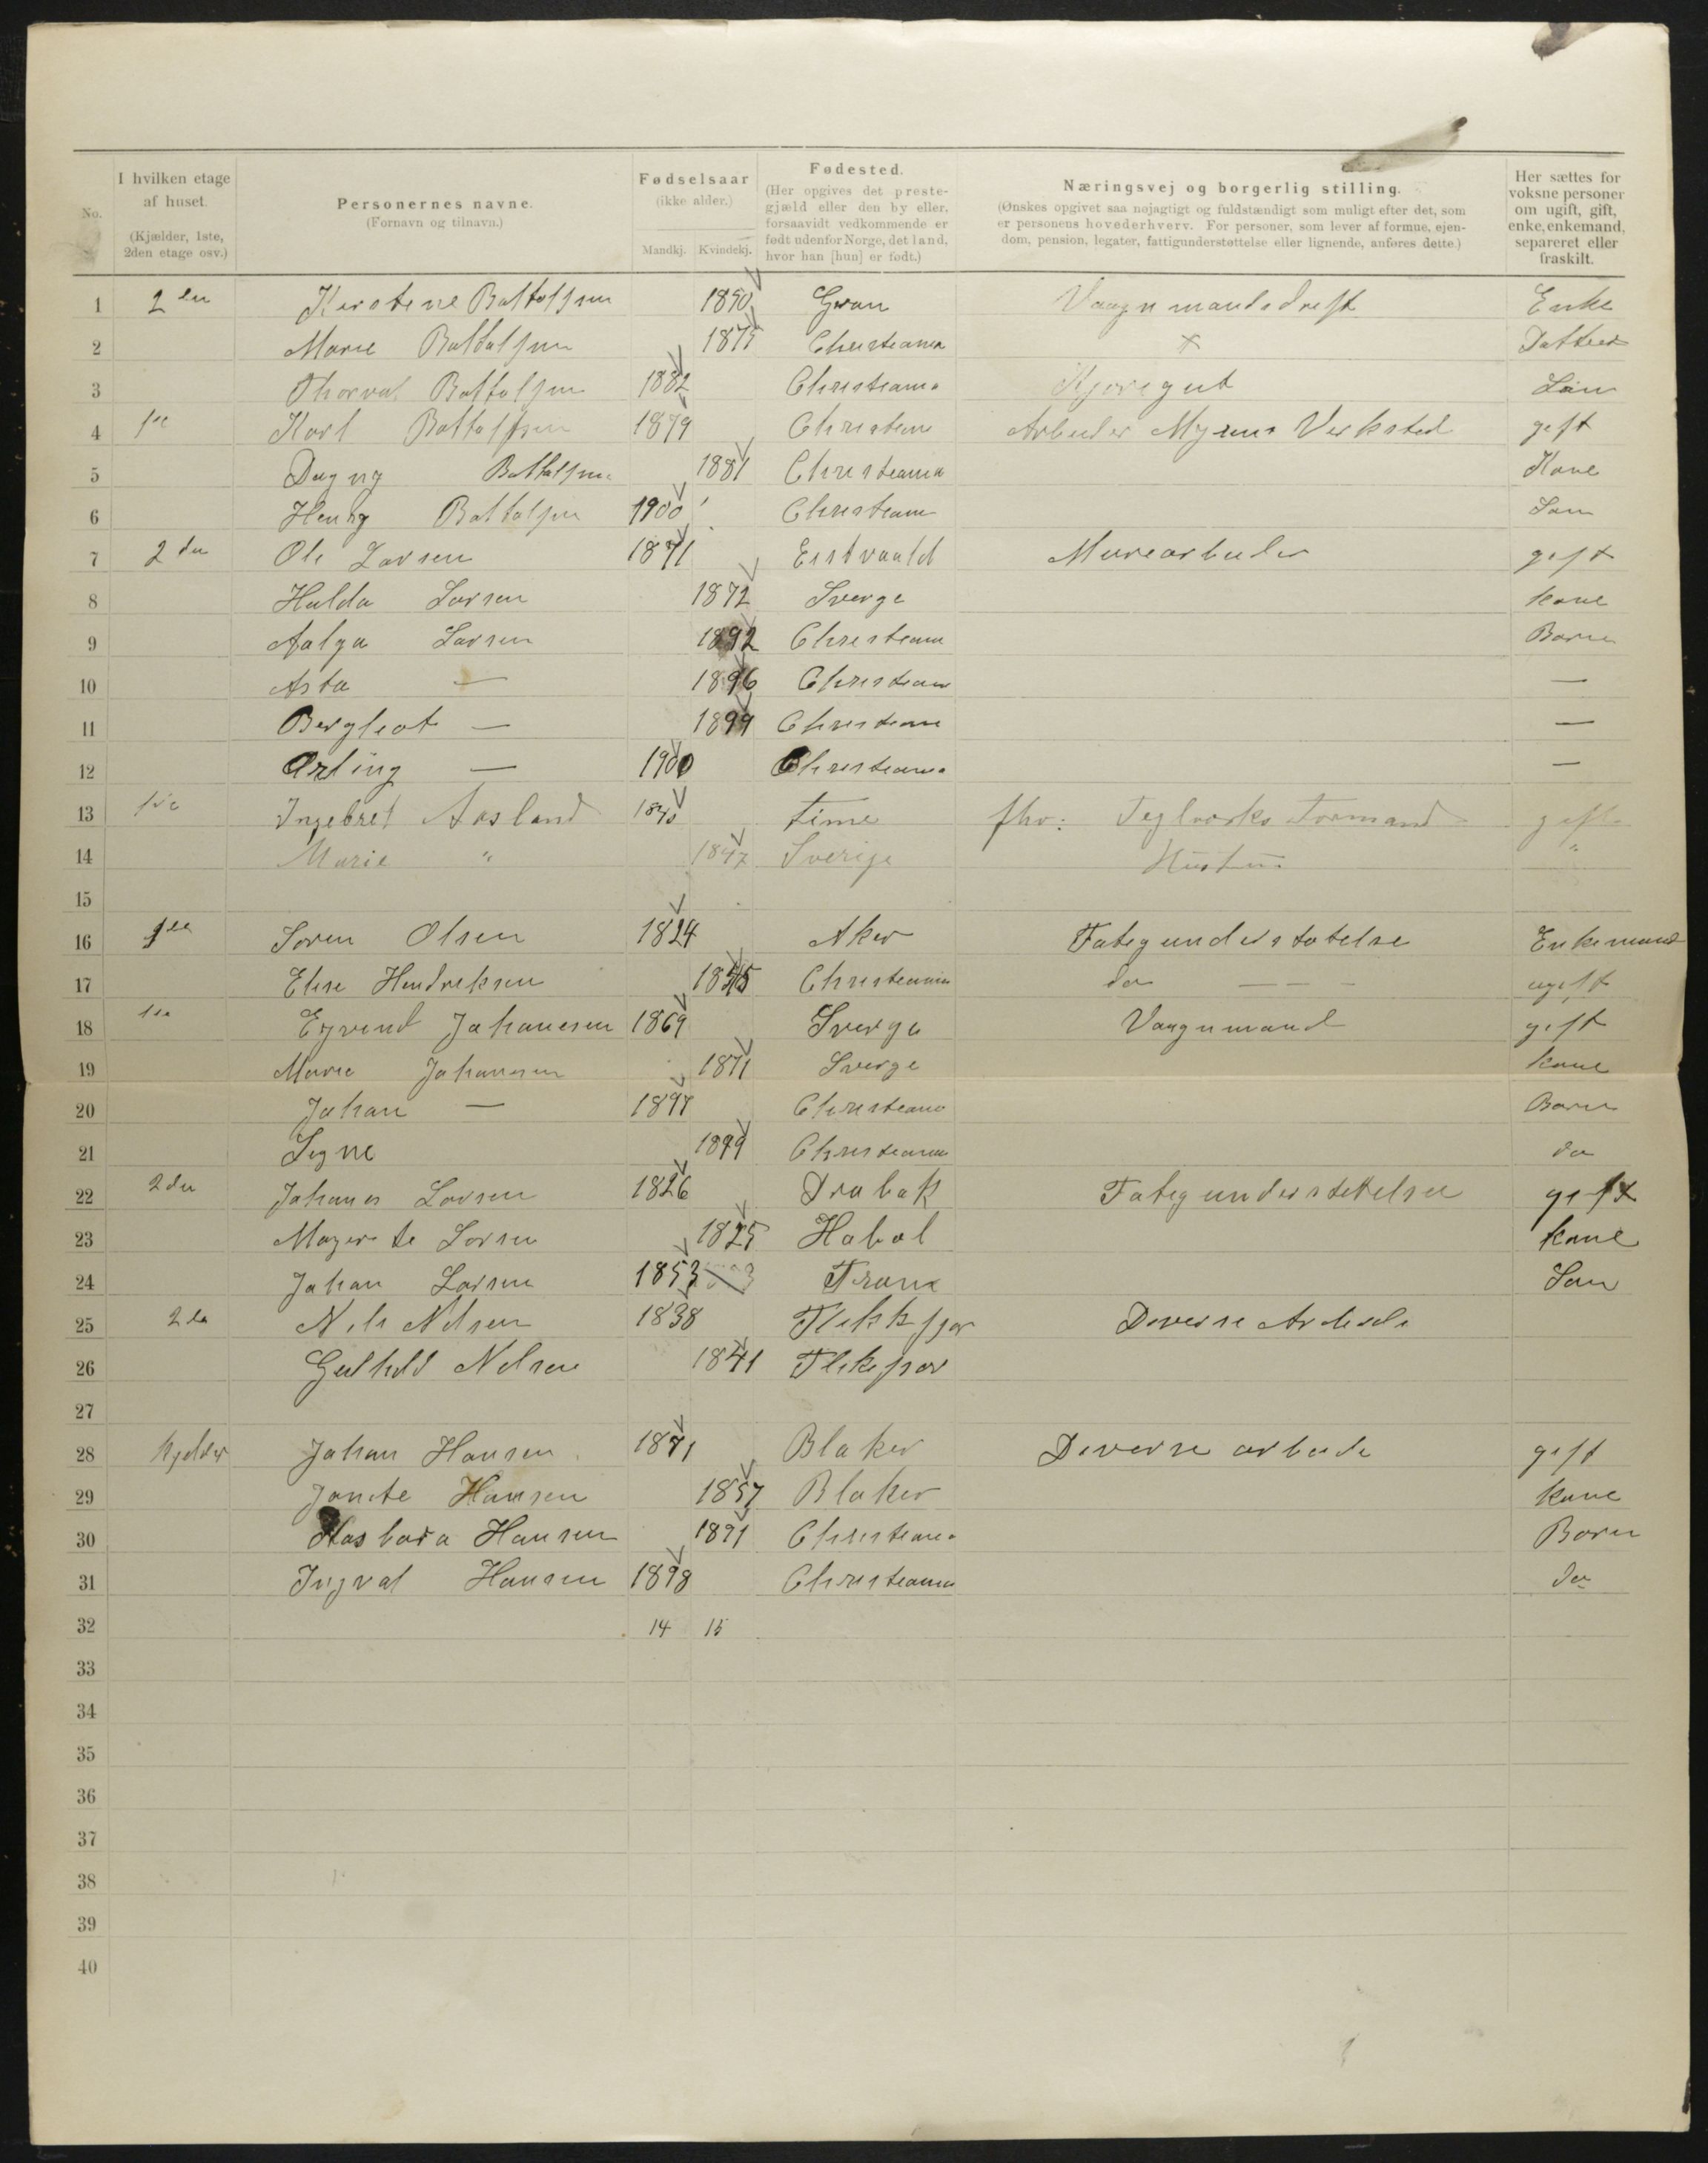 No.
I hvilken etage af huset.
(Kjælder, 1ste, 2den etage osv.)
Personernes navne.
(Fornavn og tilnavn.)
Fødselsaar
(ikke alder.)
Mandkj. Kvindekj.
Fødested.
(Her opgives det prestegjæld eller den by eller, forsaavidt vedkommende er født udenfor Norge, det land, hvor han [hun] er født.)
Næringsvej og borgerlig stilling.
(Ønskes opgivet saa nøjagtigt og fuldstændigt som muligt efter det, som er personens hovederhverv. For personer, som lever af formue, ejendom, pension, legater, fattigunderstøttelse eller lignende, anføres dette.)
Her sættes for voksne personer om ugift, gift, enke, enkemand, separeret eller fraskilt.
1 2den Kirstene Battolfsen 1850 Gran Vaagnmandsdreft Enke
2 Marie Battolfsen 1875 Christiania x Datter
3 Thorval Battolfsen 1882 Christiania Kjøregut Søn
4 1ste Karl Battolfsen 1879 Christiania Arbeider Myrens Verksted geft
5 Dagny Battolfsen 1881 Christiania Kone
6 Henry Battolfsen 1900 Christiania Søn
7 2den Ole Larsen 1871 Eistvaald Murearbeider geft
8 Hulda Larsen 1872 Sverge kone
9 Aalga Larsen 1892 Christiania Barn
10 Asta — 1896 Christiania —
11 Bergleot — 1899 Christiania —
12 Arling — 1900 Christiania —
13 1ste Ingebret Aasland 1840 time fhv: Teglværks Formand gift
14 Marie " 1847 Sverige Hustru "
15
16 1ste Søren Olsen 1824 Aker Fategunderstøtelse Enkemand
17 Elise Hendreksen 1845 Christiania do — — — ugift
18 1ste Ejvend Johanesen 1869 Sverge Vaagnmand geft
19 Marie Johanesen 1871 Sverge kone
20 Johan — 1897 Christiania Barn
21 Segne 1899 Christiania do
22 2den Johanes Larsen 1826 Drøbak Fategunderstettelse geft
23 Magrete Larsen 1825 Habøl kone
24 Johan Larsen 1853 Søn
25 2den Nels Nelsen 1838 Flekkfjor Deverse Arbeide
26 Gulheld Nelsen 1841 Flekefjor
27
28 Kjelder Johan Hansen 1871 Blaker Deverse arbeide geft
29 Hansen 1857 Blaker kone
30 Hansen 1891 Christiania Barn
31 Ingval Hansen 1898 Christiania do
32 14 15
33
34
35
36
37
38
39
40